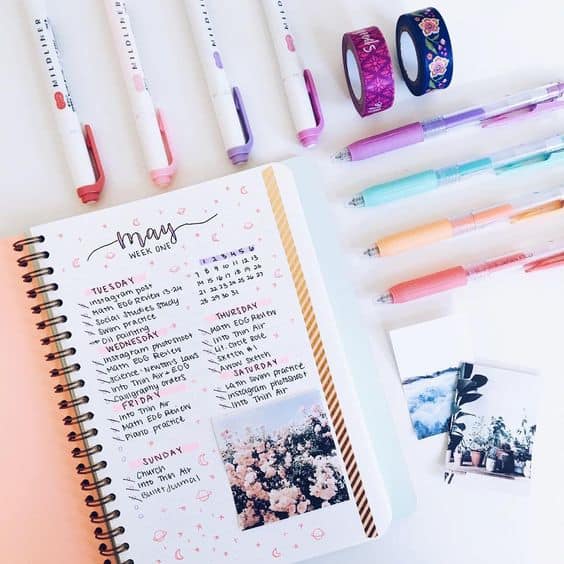 MILDLINER
MILDLINER
MILDLINER
MILDLINER
may
WEEK ONE
1 2 3 4 5 6
7 8 9 10 11 12 13
14 15 16 17 18 19 20
21 22 23 24 25 26 27
28 29 30 31
TUESDAY
Instagram post
Math EOG Review 13-24
Social Studies Study
Swim practice
Oil painting
WEDNESDAY
Instagram photoshoot
Math EOG Review
Science: Newton's Laws
Into Thin Air + EOG
Calligraphy orders
FRIDAY
Into Thin Air
Math EOG Review
Piano practice
SUNDAY
Church
Into Thin Air
Bullet Journal
THURSDAY
Math EOG Review
Into Thin Air
Lit Circle Role
Sketch #1
Avow Sketch
SATURDAY
Swim practice
Instagram photoshoot
Into Thin Air